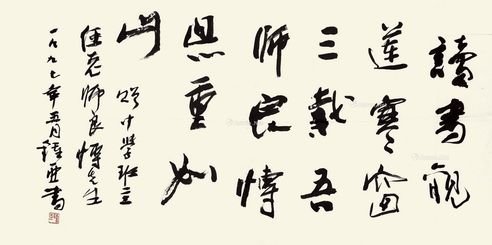 讀書觀
蓮寒窗
三載吾
師良愽
恩重如
山
贈中學班主
任老师良愽先生
一九九七年五月鍾亞書